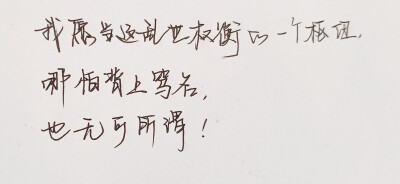 我愿当这乱世权衡的一个枢纽，
哪怕背上骂名，
也无可所谓！